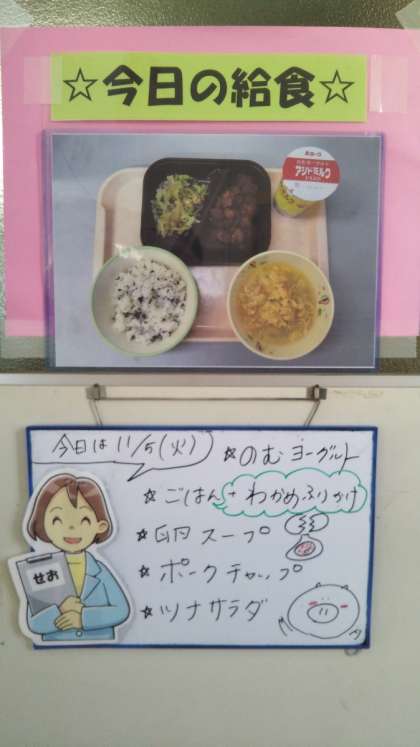 ☆今日の給食☆
アシドミルク
今日は11/5(火)
☆のむヨーグルト
☆ごはん+わかめふりかけ
☆卵スープ
☆ポークチャップ
☆ツナサラダ
せお